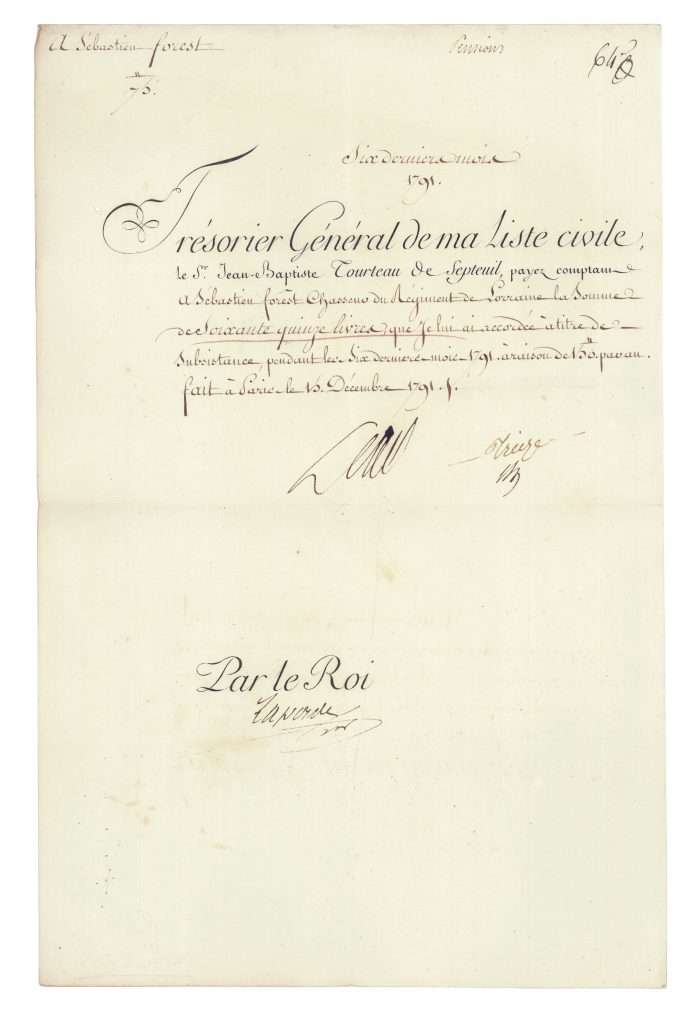 A Sébastien forest
Pensions
75.
Six derniers mois
1791.
Trésorier Général de ma Liste civile,
le Sr. Jean-Baptiste Tourteau de Septeuil, payez comptant
A Sébastien forest Chasseur du Régiment de Lorraine la Somme
de Soixante quinze livres que Je lui ai accordée à titre de
Subsistance pendant les Six derniers mois 1791. à raison de 150.tt par an.
fait à Paris le 15. Décembre 1791.
Louis
Par le Roi
Laporte